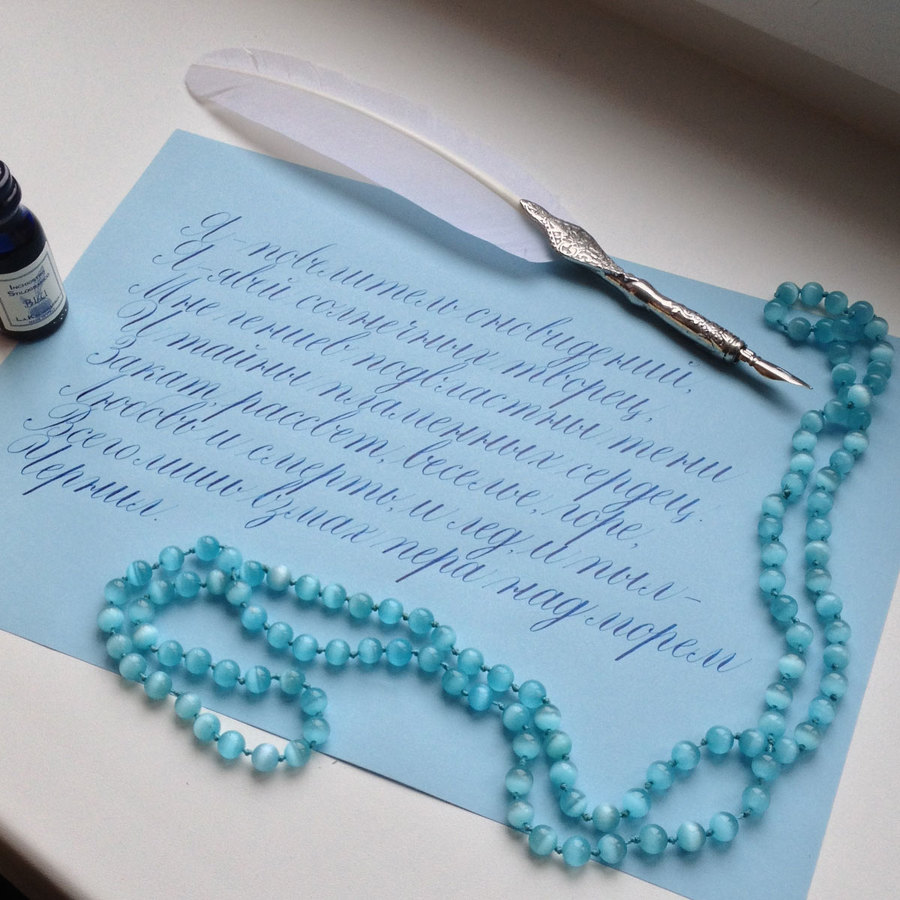 Я-повелитель сновидений,
Я-явей солнечных творец,
Мне гениев подвластны тени
И тайны пламенных сердец.
Закат, рассвет, веселье, горе,
Любовь и смерть, и лед, и пыл-
Всего лишь взмах пера над морем
Чернил.
INCHIOSTRO
STILOGRAFICO